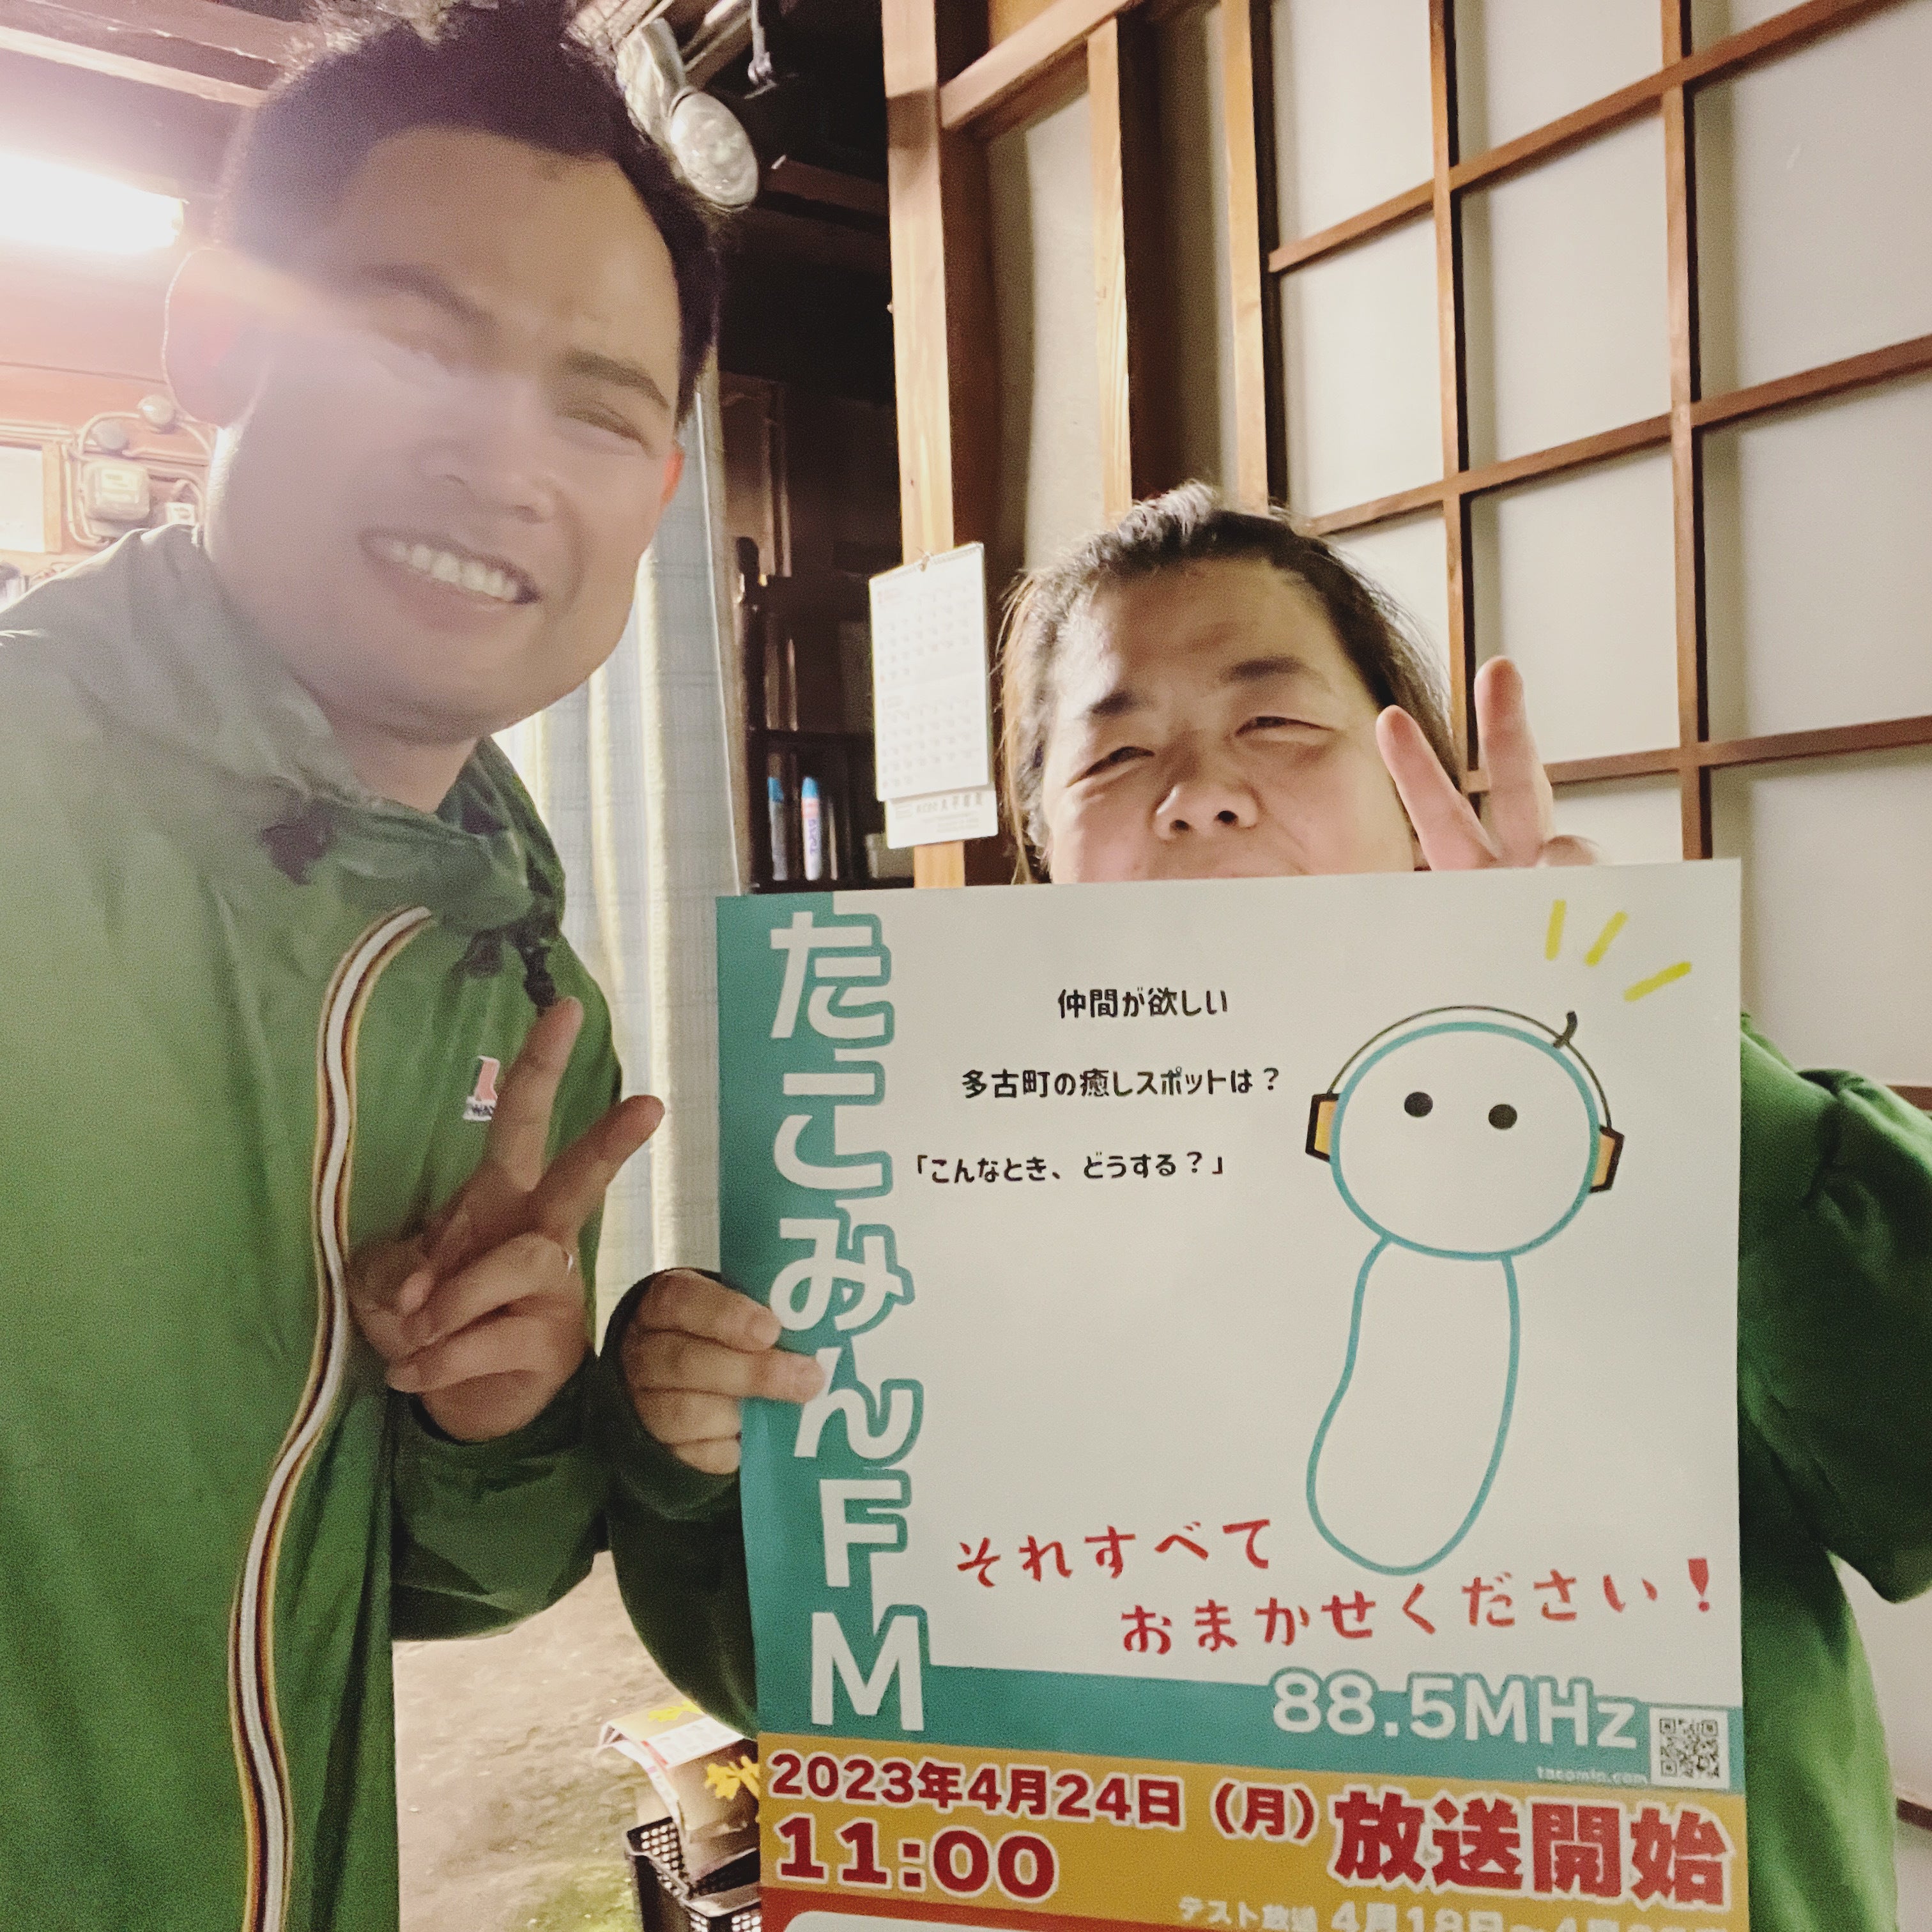 たこみんFM
仲間が欲しい
多古町の癒しスポットは？
「こんなとき、どうする？」
それすべて
おまかせください！
88.5MHz
tacomin.com
2023年4月24日（月）
11:00
放送開始
テスト放送 4月18日～4月